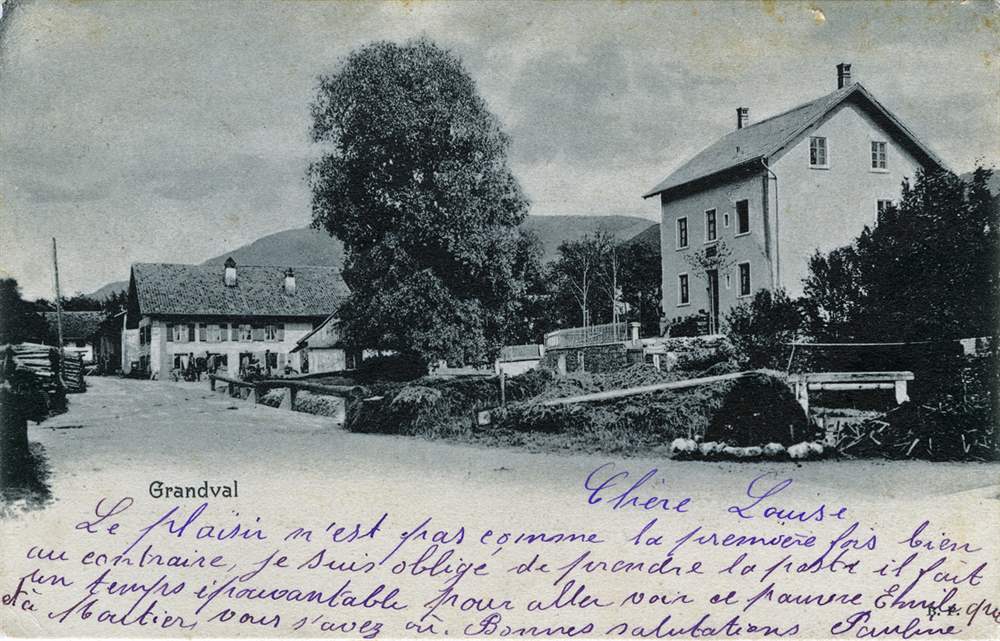 Grandval
Chère Louise
Le plaisir n'est pas comme la première fois bien
au contraire, je suis obligé de prendre la poste il fait
un temps épouvantable pour aller voir ce pauvre Emile qui
à Moutier, vous s'avez où. Bonnes salutations Pauline